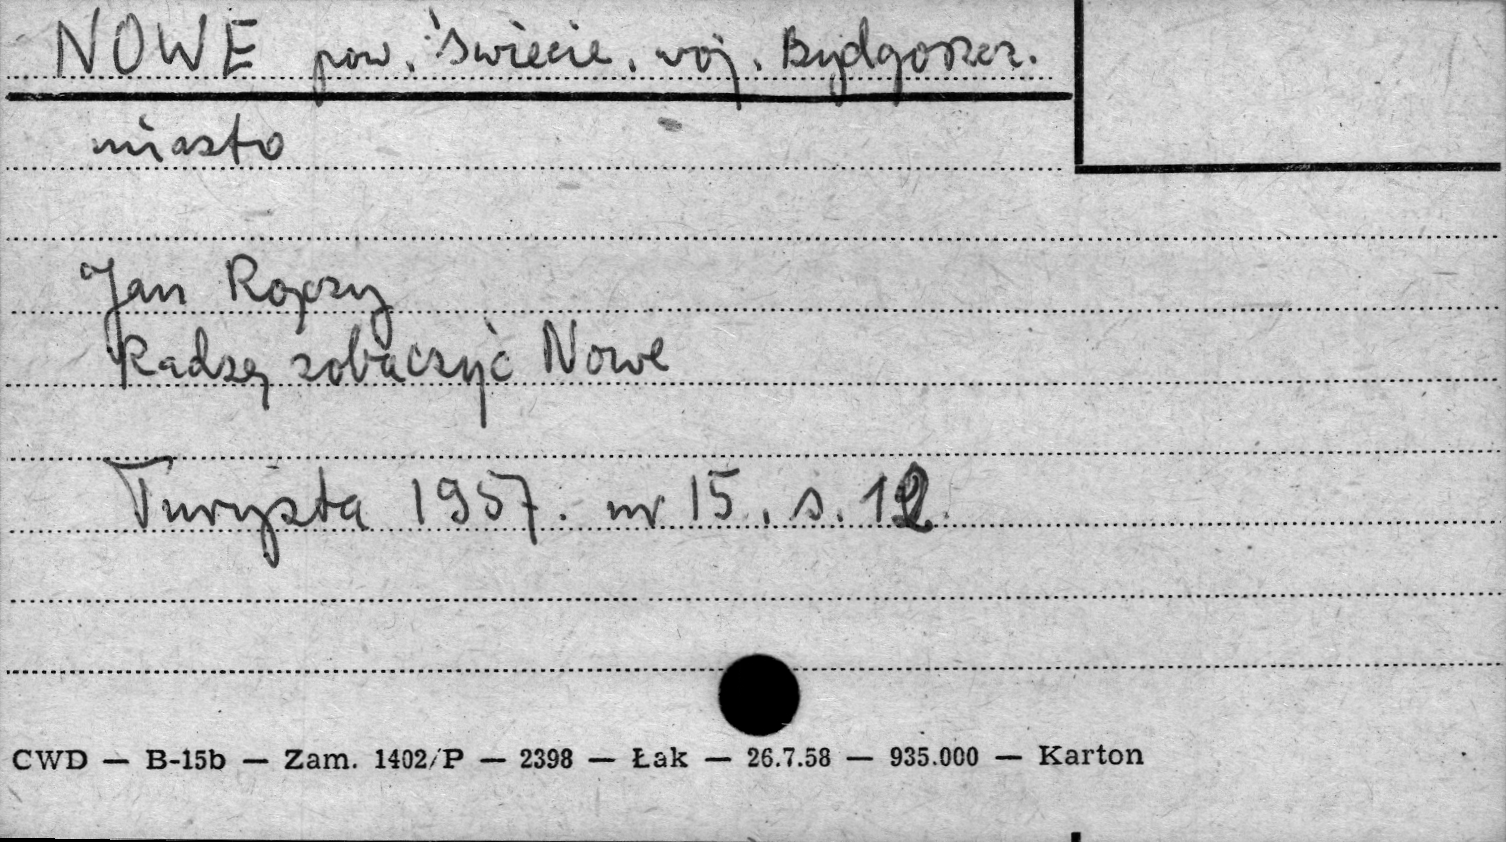 NOWE pow. Świecie. woj. Bydgoszcz.
miasto
Jan Ropszy
Radzę zobaczyć Nowe
Turysta 1957. nr 15, s. 12.
CWD — B-15b — Zam. 1402/P — 2398 — Łak — 26.7.58 — 935.000 — Karton